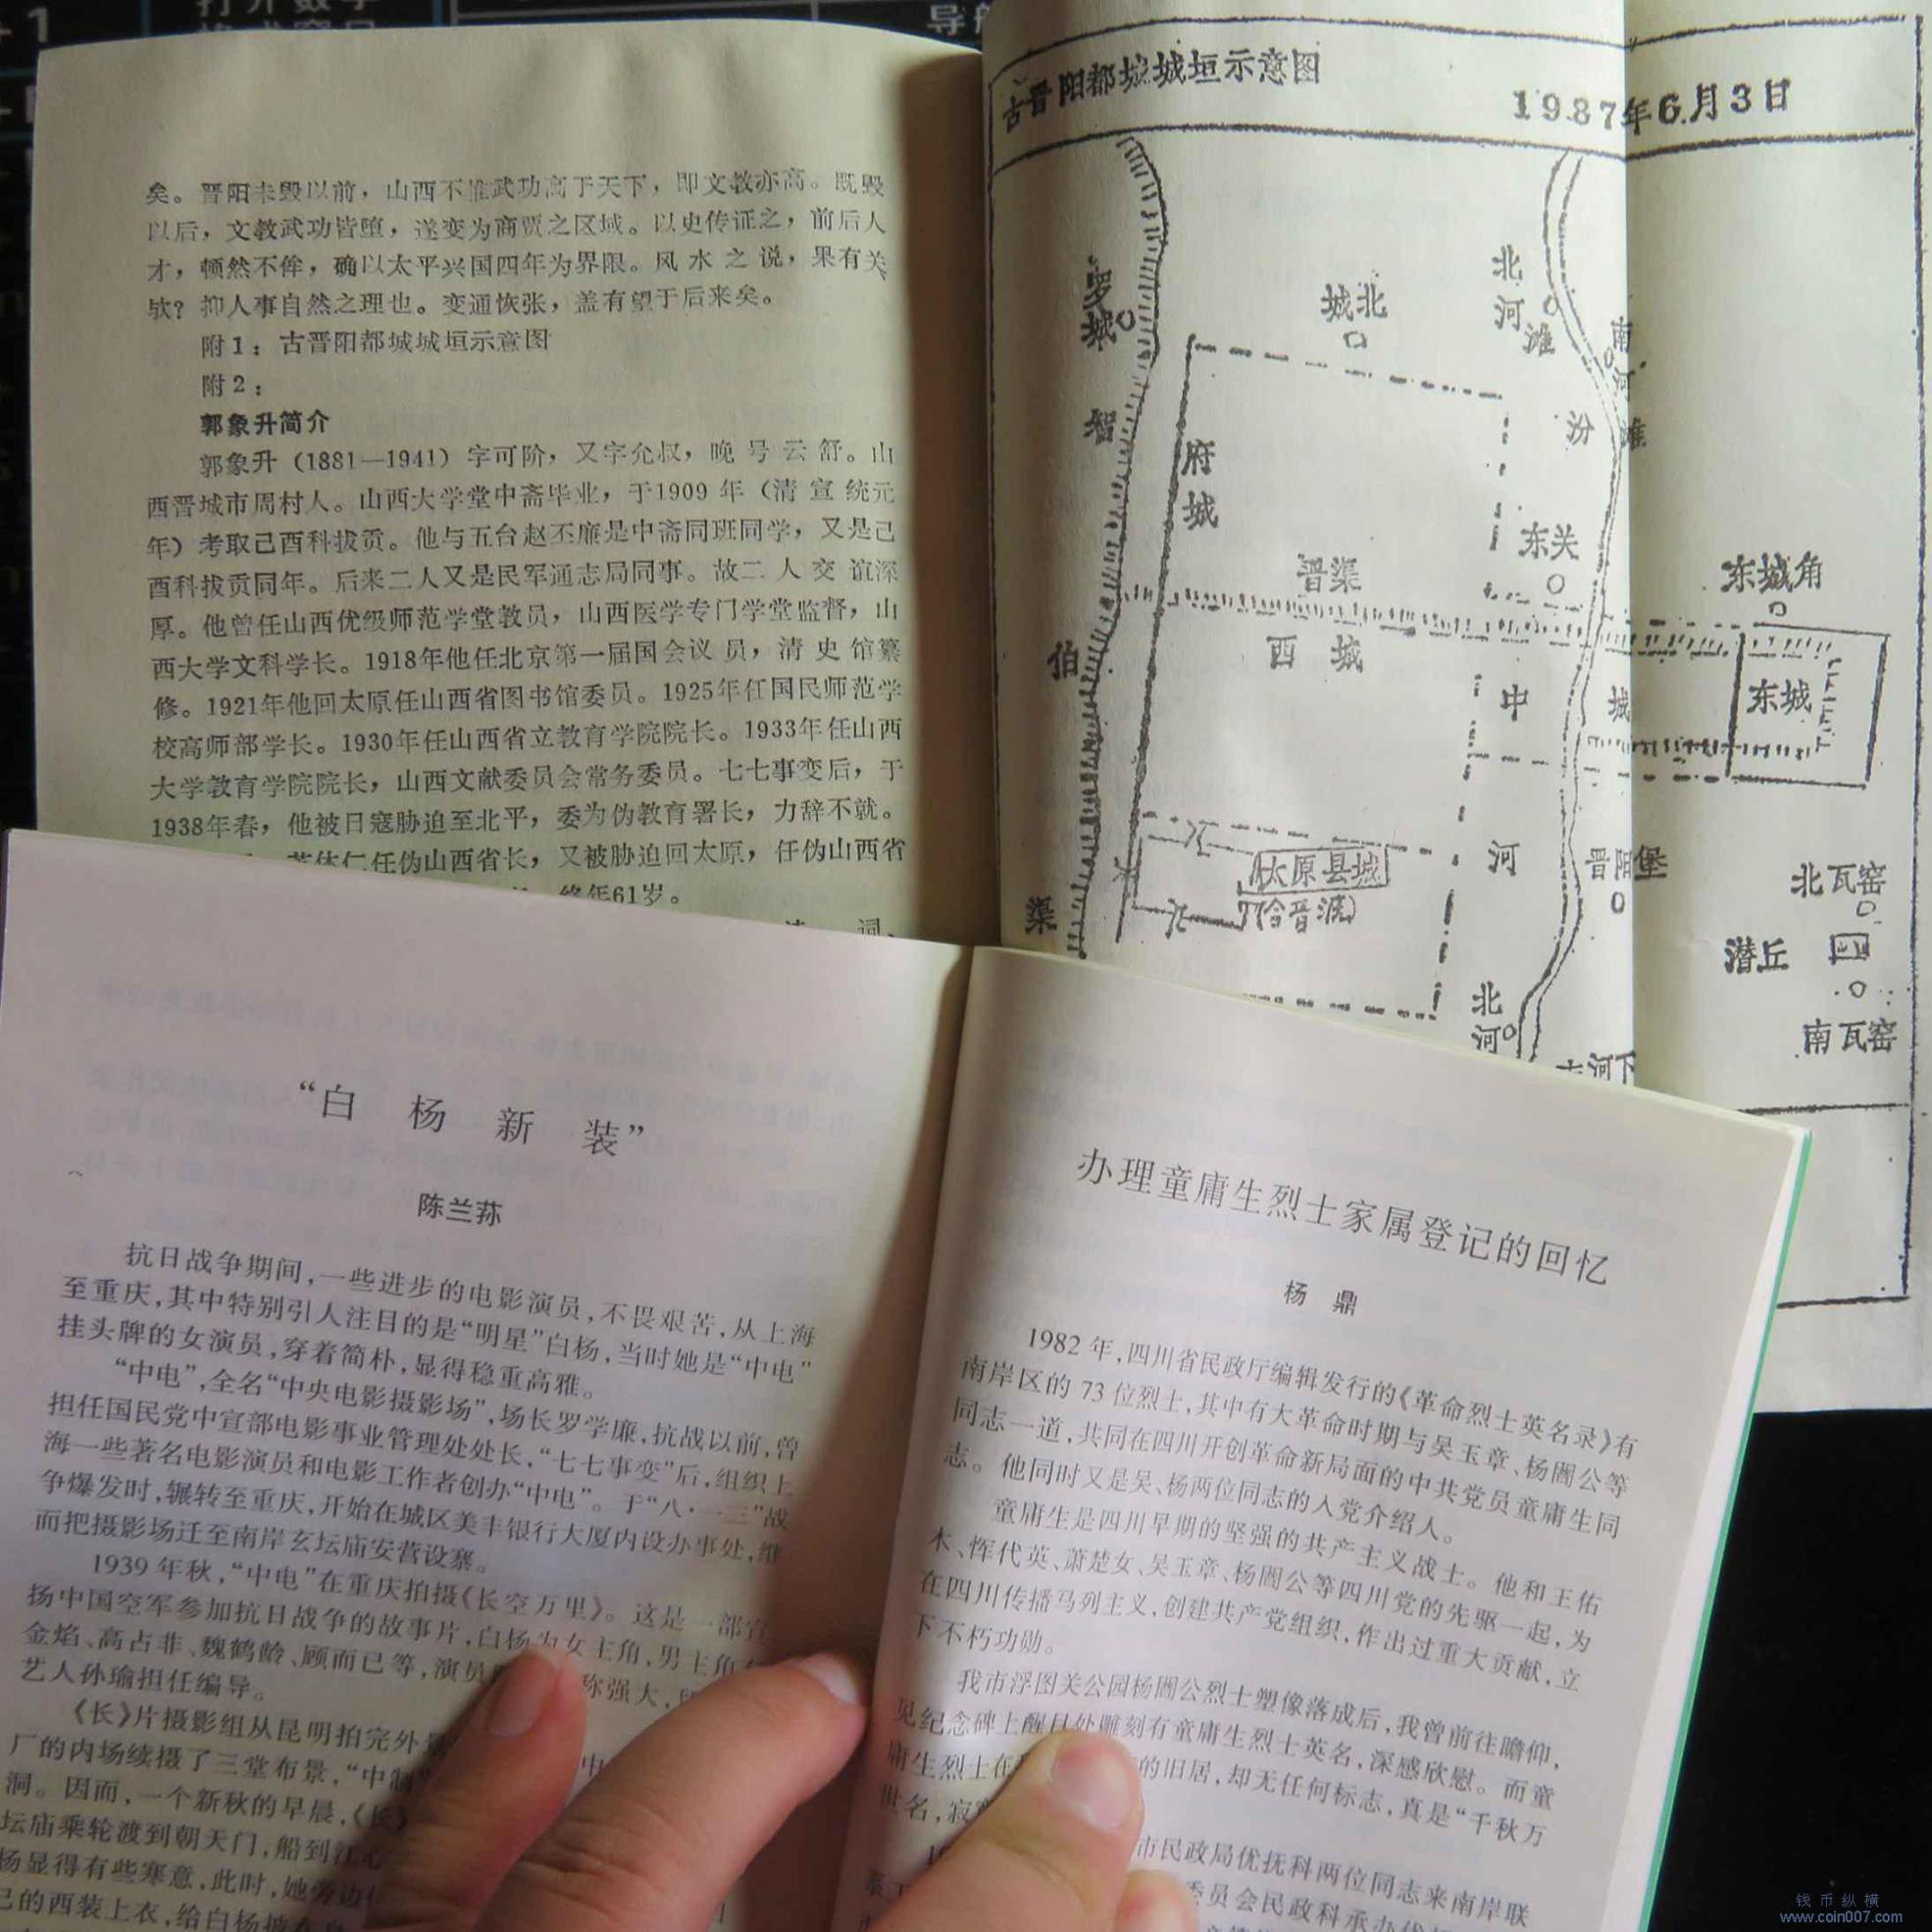 矣。晋阳未毁以前，山西不惟武功高于天下，即文教亦高。既毁
以后，文教武功皆堕，遂变为商贾之区域。以史传证之，前后人
才，顿然不侔，确以太平兴国四年为界限。风水之说，果有关
欤？抑人事自然之理也。变通恢张，盖有望于后来矣。
附1：古晋阳都城城垣示意图
附2：
郭象升简介
郭象升（1881—1941）字可阶，又字允叔，晚号云舒。山
西晋城市周村人。山西大学堂中斋毕业，于1909年（清宣统元
年）考取己酉科拔贡。他与五台赵丕廉是中斋同班同学，又是己
酉科拔贡同年。后来二人又是民军通志局同事。故二人交谊深
厚。他曾任山西优级师范学堂教员，山西医学专门学堂监督，山
西大学文科学长。1918年他任北京第一届国会议员，清史馆纂
修。1921年他回太原任山西省图书馆委员。1925年任国民师范学
校高师部学长。1930年任山西省立教育学院院长。1933年任山西
大学教育学院院长，山西文献委员会常务委员。七七事变后，于
1938年春，他被日寇胁迫至北平，委为伪教育署长，力辞不就。
苏体仁任伪山西省长，又被胁迫回太原，任伪山西省
终年61岁。
词、
古晋阳都城城垣示意图
1987年6月3日
罗城
城北
北河滩
南河滩
智
府城
汾
东关
晋渠
东城角
伯
西城
中城
东城
太原县城
(含晋源)
河
晋阳堡
北瓦窑
渠
潜丘
北河
南瓦窑
下河
“白杨新装”
陈兰荪
抗日战争期间，一些进步的电影演员，不畏艰苦，从上海
至重庆，其中特别引人注目的是“明星”白杨，当时她是“中电”
挂头牌的女演员，穿着简朴，显得稳重高雅。
“中电”，全名“中央电影摄影场”，场长罗学廉，抗战以前，曾
担任国民党中宣部电影事业管理处处长，“七七事变”后，组织上
海一些著名电影演员和电影工作者创办“中电”。于“八·一三”战
争爆发时，辗转至重庆，开始在城区美丰银行大厦内设办事处，继
而把摄影场迁至南岸玄坛庙安营设寨。
1939年秋，“中电”在重庆拍摄《长空万里》。这是一部宣
扬中国空军参加抗日战争的故事片，白杨为女主角，男主角有
金焰、高占非、魏鹤龄、顾而已等，演员 称强大，
艺人孙瑜担任编导。
《长》片摄影组从昆明拍完外景
厂的内场续摄了三堂布景，“中制”
洞。因而，一个新秋的早晨，《长》
坛庙乘轮渡到朝天门，船到江心
杨显得有些寒意，此时，她旁边
己的西装上衣，给白杨披在
办理童庸生烈士家属登记的回忆
杨鼎
1982年，四川省民政厅编辑发行的《革命烈士英名录》有
南岸区的73位烈士，其中有大革命时期与吴玉章、杨闇公等
同志一道，共同在四川开创革命新局面的中共党员童庸生同
志。他同时又是吴、杨两位同志的入党介绍人。
童庸生是四川早期的坚强的共产主义战士。他和王佑
木、恽代英、萧楚女、吴玉章、杨闇公等四川党的先驱一起，为
在四川传播马列主义，创建共产党组织，作出过重大贡献，立
下不朽功勋。
我市浮图关公园杨闇公烈士塑像落成后，我曾前往瞻仰，
见纪念碑上醒目处雕刻有童庸生烈士英名，深感欣慰。而童
庸生烈士在 的旧居，却无任何标志，真是“千秋万
世名，寂寞
市民政局优抚科两位同志来南岸联
委员会民政科承办
钱币纵横
www.coin007.com